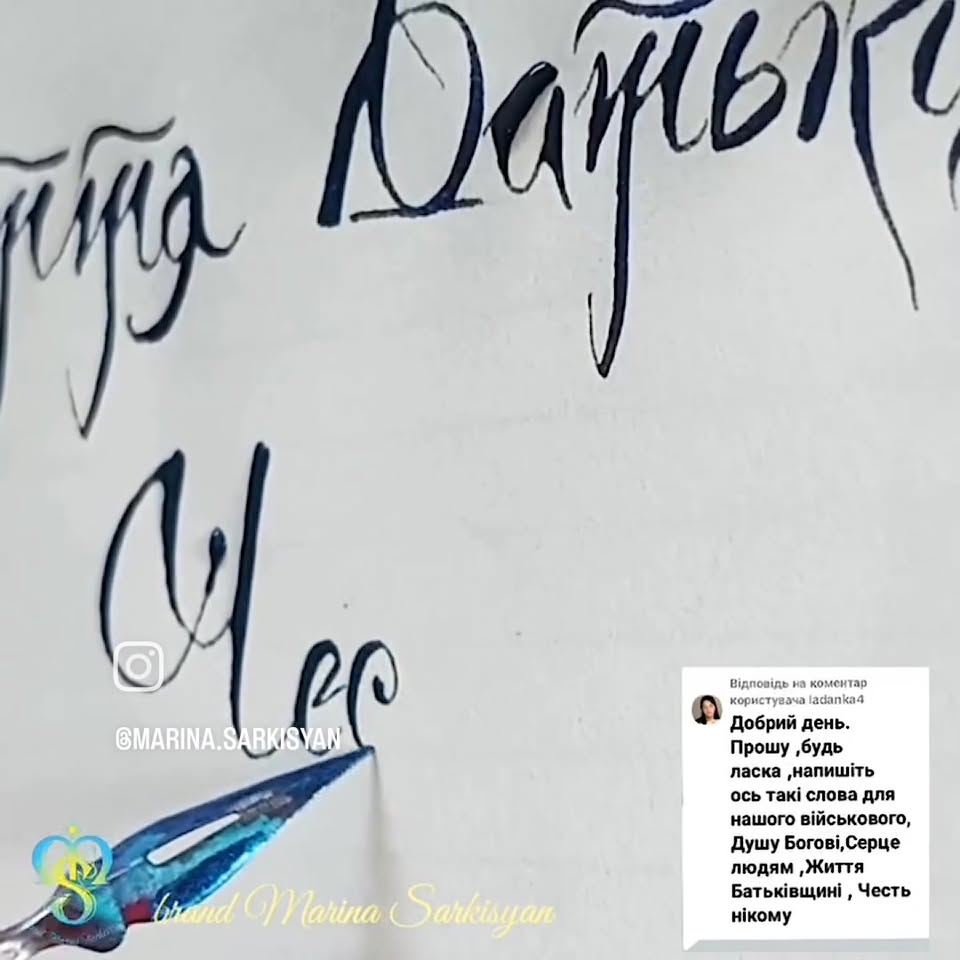 ття Батьк
Чес
@MARINA.SARKISYAN
brand Marina Sarkisyan
Відповідь на коментар
користувача ladanka4
Добрий день.
Прошу ,будь
ласка ,напишіть
ось такі слова для
нашого військового,
Душу Богові,Серце
людям ,Життя
Батьківщині , Честь
нікому